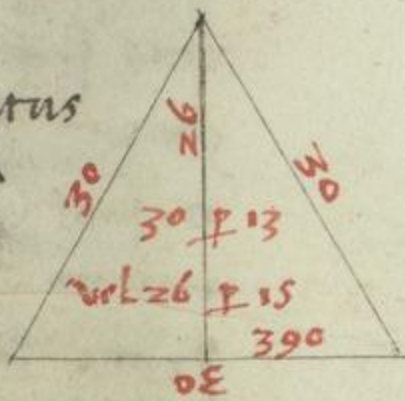 tus
30
26
30
30 p 13
vel 26 p 15
390
30